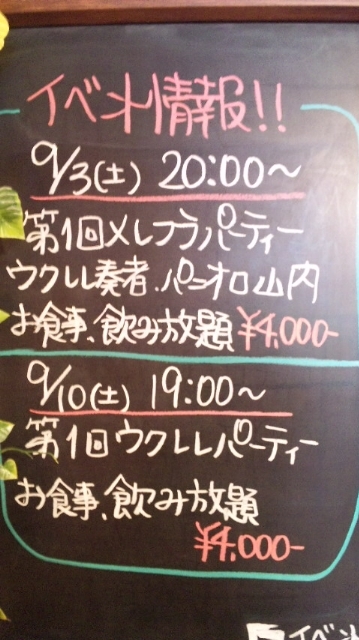 イベント情報!!
9/3(土) 20:00〜
第1回メレフラパーティー
ウクレレ奏者.パニオロ山内
お食事、飲み放題 ¥4,000-
9/10(土) 19:00〜
第1回ウクレレパーティー
お食事、飲み放題
¥4,000-
イベン